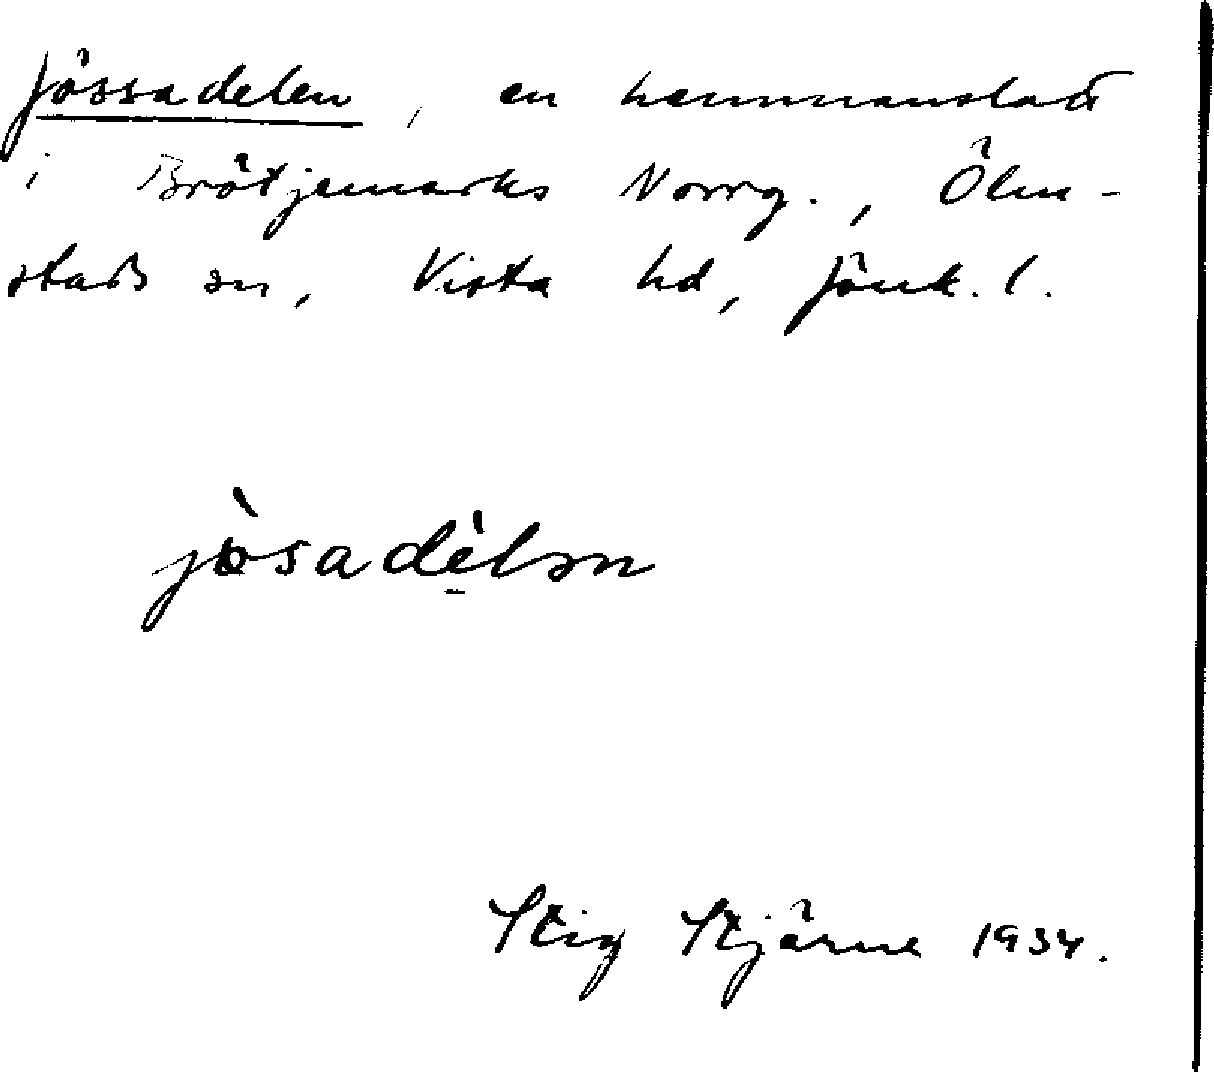 Jössadelen, en hemmanslott
i Brötjemarks Norrg., Ölm-
stads sn, Vista hd, Jönk. l.
jòsadèlən
Stig Stjärne 1934.